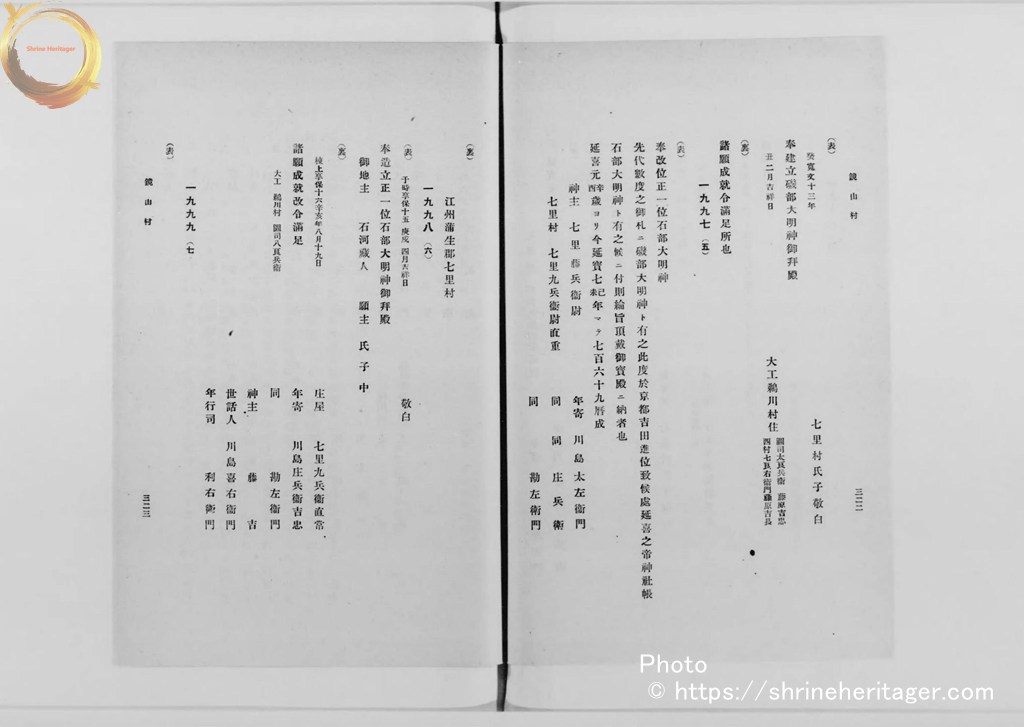 鏡山村
三二二
(表)
癸寛文十三年
奉建立磯部大明神御拜殿
丑二月吉祥日
七里村氏子敬白
大工鵜川村住
(裏)
諸願成就令滿足所也
一九九七(五)
(表)
奉改位正一位石部大明神
先代數度之御札ニ磯部大明神ト有之此度於京都吉田進位致候處延喜之帝神社帳
石部大明神ト有之候ニ付則綸旨頂戴御寶殿ニ納者也
延喜元辛酉歲ヨリ今延寶七己未年マテ七百六十九曆成
神主 七里藤兵衞尉
七里村 七里九兵衞尉直重
年寄 川島太左衞門
同 同 庄兵衞
同 勘左衞門
(裏)
江州蒲生郡七里村
一九九八(六)
(表)
于時享保十五庚戌四月吉祥日
敬白
奉造立正一位石部大明神御拜殿
御地主 石河藏人 願主 氏子中
(裏)
棟上享保十六辛亥年八月十九日
諸願成就改令滿足
大工 鵜川村
庄屋 七里九兵衞直常
年寄 川島庄兵衞吉忠
同 勘左衞門
神主 藤吉
世話人 川島喜右衞門
年行司 利右衞門
一九九九(七)
(表)
鏡山村
三二三
Shrine Heritager
Photo
© https://shrineheritager.com